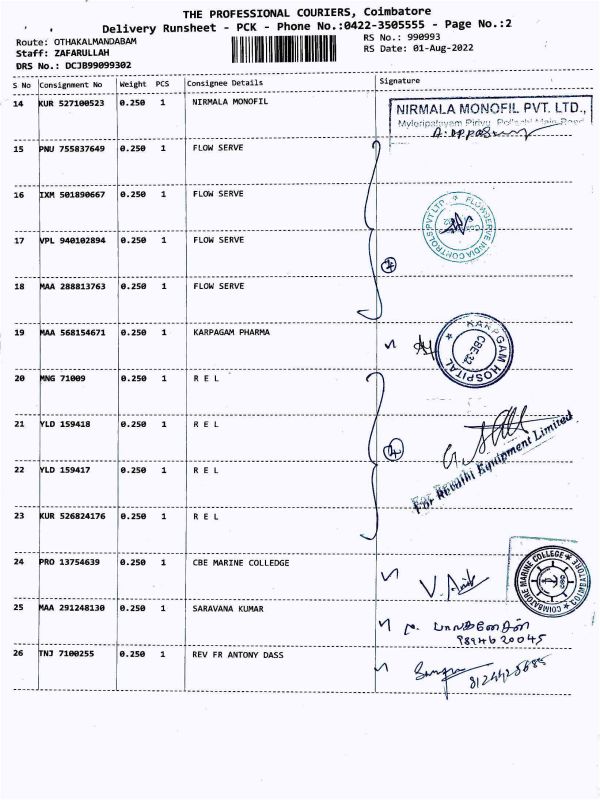 THE PROFESSIONAL COURIERS, Coimbatore
Delivery Runsheet - PCK - Phone No.:0422-3505555 - Page No.:2
Route: OTHAKALMANDABAM
RS No.: 990993
Staff: ZAFARULLAH
RS Date: 01-Aug-2022
DRS No.: DCJB99099302
S No Consignment No Weight PCS Consignee Details Signature
14 KUR 527100523 0.250 1 NIRMALA MONOFIL
NIRMALA MONOFIL PVT. LTD.,
Myleripalayam Pirivu, Pollachi Main Road
15 PNU 755837649 0.250 1 FLOW SERVE
16 IXM 501890667 0.250 1 FLOW SERVE
FLOWSERVE INDIA CONTROLS PVT LTD
17 VPL 940102894 0.250 1 FLOW SERVE
18 MAA 288813763 0.250 1 FLOW SERVE
19 MAA 568154671 0.250 1 KARPAGAM PHARMA
KARPAGAM HOSPITAL
CBE-32
20 MNG 71009 0.250 1 R E L
21 YLD 159418 0.250 1 R E L
22 YLD 159417 0.250 1 R E L
For Revathi Equipment Limited
23 KUR 526824176 0.250 1 R E L
24 PRO 13754639 0.250 1 CBE MARINE COLLEDGE
COIMBATORE MARINE COLLEGE
25 MAA 291248130 0.250 1 SARAVANA KUMAR
9894620045
26 TNJ 7100255 0.250 1 REV FR ANTONY DASS
8124425685